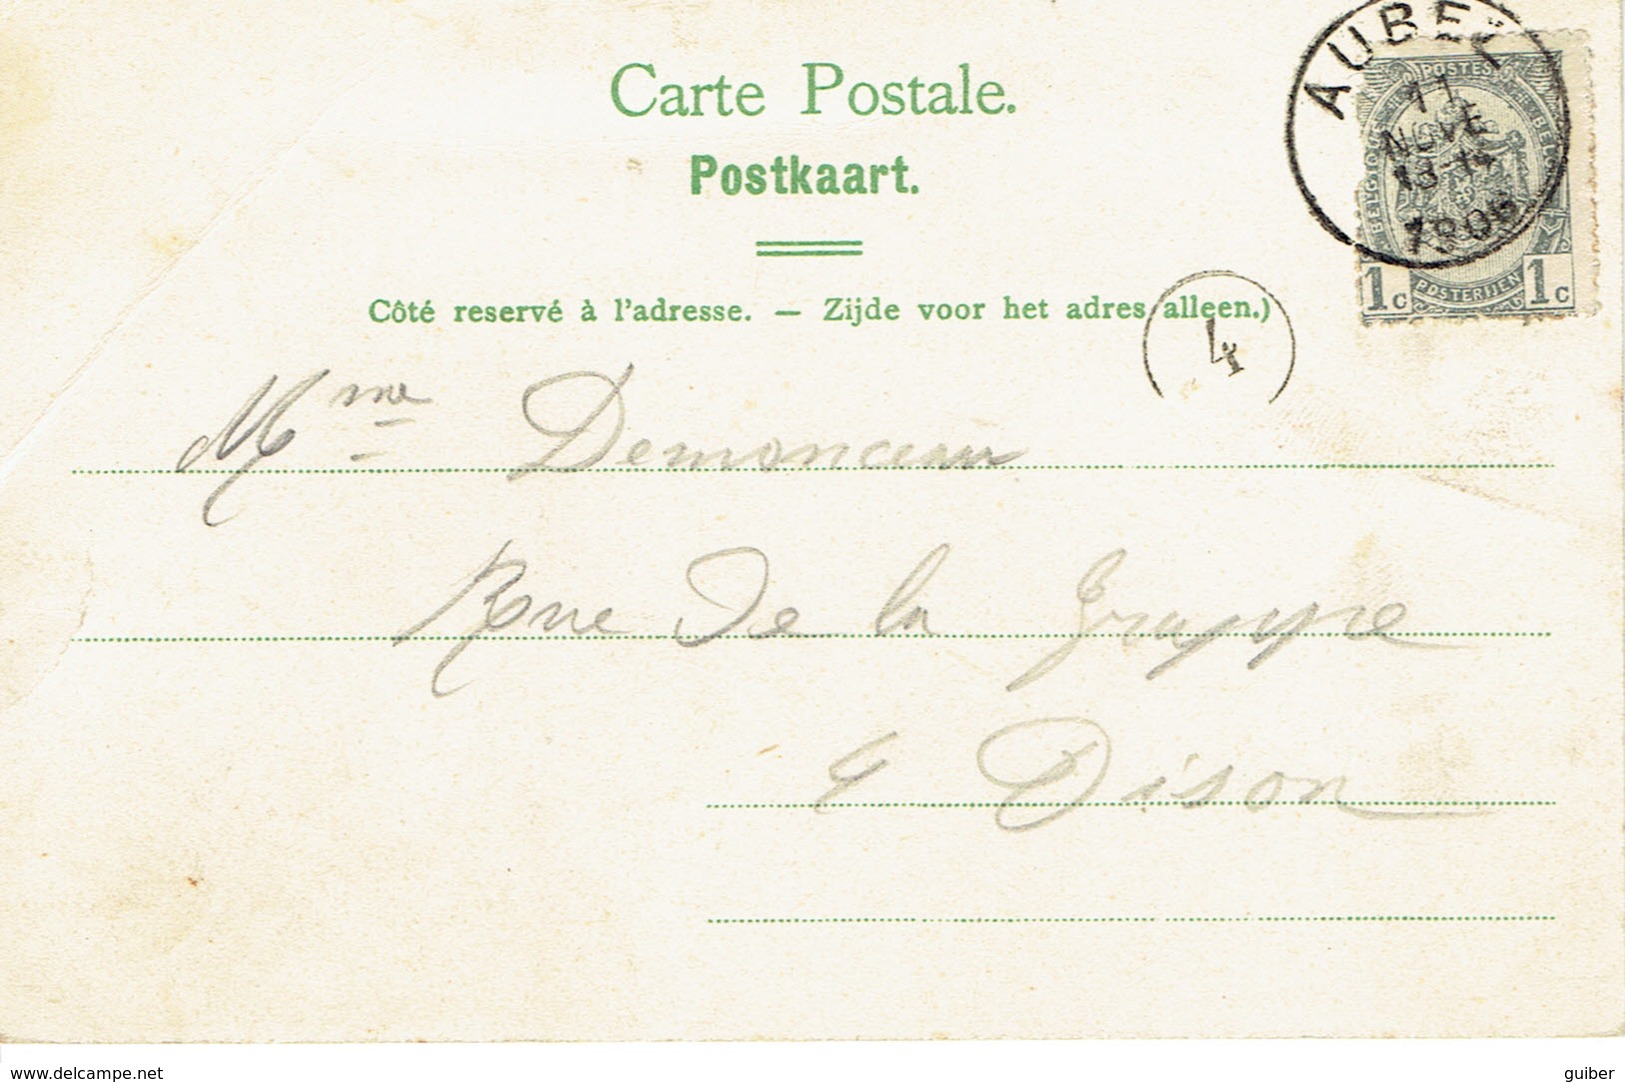 Carte Postale.
Postkaart.
AUBEL
11
NOVE
13-14
1906
POSTES
BELGIQUE
BELGIË
POSTERIJEN
1c 1c
Côté reservé à l'adresse. — Zijde voor het adres alleen.)
4
Mme Demonceau
Rue De la Grappe
4 Dison
www.delcampe.net
guiber